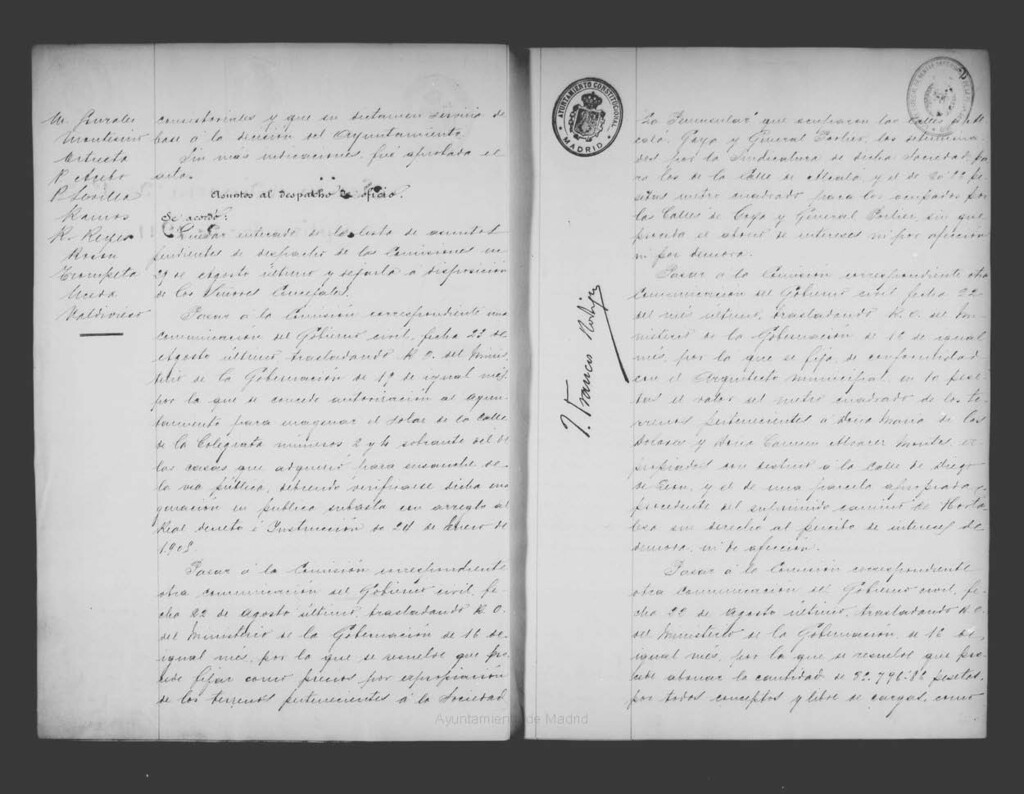 M. González
Montesino
Artiesta
P. Acebo
P. Sevilla
Ramos
R. Reyes
Rosón
Trompeta
Uceda
Valdivieso
consistoriales y que su dictamen serviría de
base á la decisión del Ayuntamiento.
Sin más indicaciones fué aprobada el
acta.
Asuntos al despacho de oficio.
Se acordó:
Quedar enterado de la lista de asuntos
pendientes de despacho de las Comisiones en
29 de agosto último y dejarla á disposición
de los Señores Concejales.
Pasar á la Comisión correspondiente una
comunicación del Gobierno civil, fecha 22 de
Agosto último, trasladando R. O. del Minis
terio de la Gobernación de 19 de igual més,
por la que se concede autorización al Ayun
tamiento para enagenar el solar de la Calle
de la Colegiata números 2 y 4 sobrante del de
las casas que adquirió para ensanche de
la vía pública, debiendo verificarse dicha ena
genación en pública subasta con arreglo al
Real decreto é Instrucción de 24 de Enero de
1905
Pasar á la Comisión correspondiente
otra comunicación del Gobierno civil, fe
cha 22 de Agosto último, trasladando R. O.
del Ministerio de la Gobernación de 16 de
igual més, por la que se resuelve que pro
cede fijar como precios por expropiación
de los terrenos pertenecientes á la Sociedad
AYUNTAMIENTO CONSTITUCIONAL
MADRID
T. Francos Rodríguez
"La Peninsular" que ocuparon las Calles de Al
calá, Goya y General Porlier, los determina
dos por la Sindicatura de dicha Sociedad pa
ra los de la Calle de Alcalá y el de 20'22 pe
setas metro cuadrado para los ocupados por
las Calles de Goya y General Porlier, sin que
proceda el abono de intereses ni por afección
ni por demora.
Pasar á la Comisión correspondiente otra
comunicación del Gobierno civil fecha 22
del més último, trasladando R. O. del Mi
nisterio de la Gobernación de 16 de igual
més, por la que se fija, de conformidad
con el Arquitecto municipal, en 10 pese
tas el valor del metro cuadrado de los te
rrenos pertenecientes á Doña María de los
Dolores y Doña Carmen Alvarez Montes ex
propiados con destino á la Calle de Diego
de León, y el de una parcela apropiada
procedente del suprimido camino de Horta
leza sin derecho al percibo de intereses de
demora, ni de afección.
Pasar á la Comisión correspondiente
otra comunicación del Gobierno civil, fe
cha 22 de Agosto último, trasladando R. O.
del Ministerio de la Gobernación, de 16 de
igual més, por la que se resuelve que pro
cede abonar la cantidad de 22.796'82 pesetas,
por todos conceptos y libre de cargas, como
Ayuntamiento de Madrid